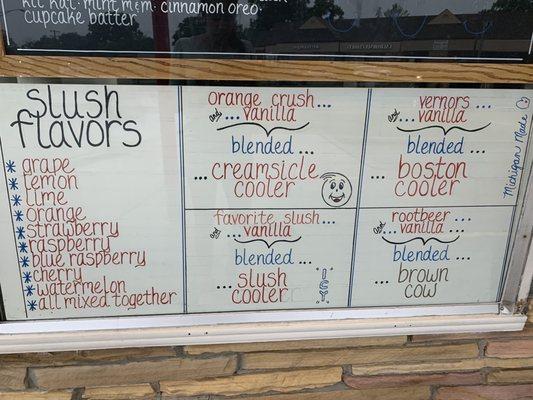 kit kat • m&m • cinnamon oreo
cupcake batter
slush
flavors
* grape
* lemon
* lime
* orange
* strawberry
* raspberry
* blue raspberry
* cherry
* watermelon
* all mixed together
orange crush...
and
... vanilla
blended ...
... creamsicle
cooler
favorite slush ...
and
... vanilla
blended ...
... slush
cooler
icy
vernors ...
and
... vanilla
blended ...
... boston
cooler
Michigan Made
rootbeer ...
and
... vanilla
blended ...
... brown
cow